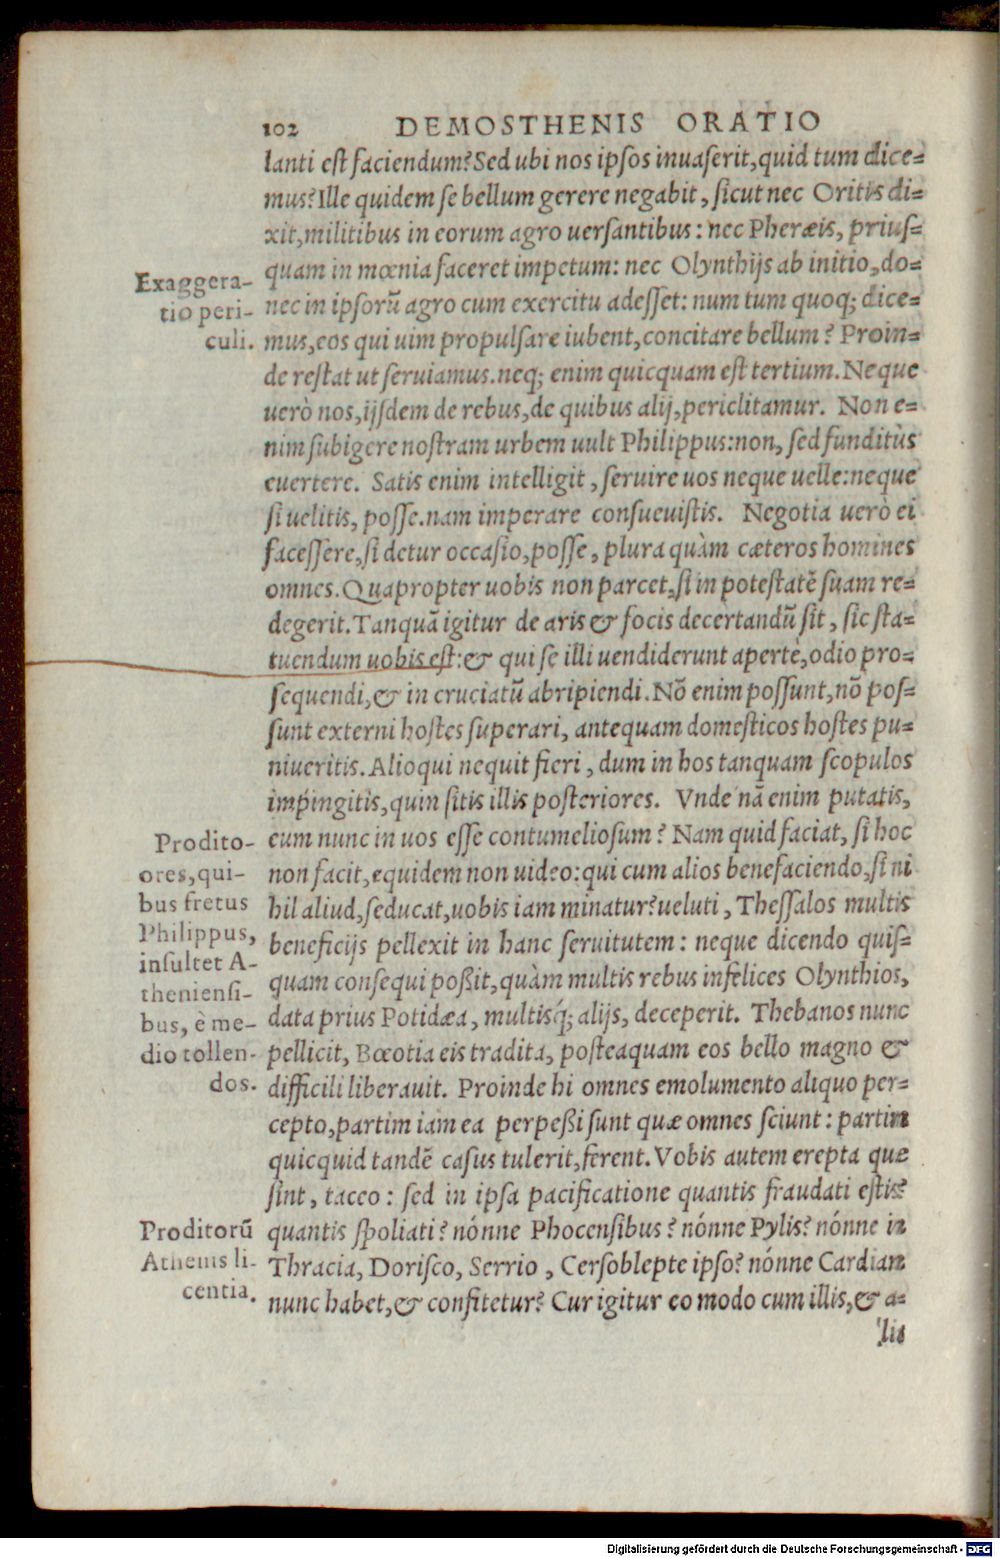 102 DEMOSTHENIS ORATIO
lanti est faciendum? Sed ubi nos ipsos inuaserit, quid tum dice=
mus? Ille quidem se bellum gerere negabit, sicut nec Oritis di=
xit, militibus in eorum agro uersantibus: nec Pheræis, prius=
quam in mœnia faceret impetum: nec Olynthijs ab initio, do=
nec in ipsorũ agro cum exercitu adesset: num tum quoq; dice=
mus, eos qui uim propulsare iubent, concitare bellum? Proin=
de restat ut seruiamus. neq; enim quicquam est tertium. Neque
uerò nos, ijsdem de rebus, de quibus alij, periclitamur. Non e=
nim subigere nostram urbem uult Philippus: non, sed funditùs
euertere. Satis enim intelligit, seruire uos neque uelle: neque
si uelitis, posse. nam imperare consueuistis. Negotia uerò ei
facessere, si detur occasio, posse, plura quàm cæteros homines
omnes. Quapropter uobis non parcet, si in potestatẽ suam re=
degerit. Tanquã igitur de aris & focis decertandũ sit, sic sta=
tuendum uobis est: & qui se illi uendiderunt apertè, odio pro=
sequendi, & in cruciatũ abripiendi. Nõ enim possunt, nõ pos=
sunt externi hostes superari, antequam domesticos hostes pu=
niueritis. Alioqui nequit fieri, dum in hos tanquam scopulos
impingitis, quin sitis illis posteriores. Vnde nã enim putatis,
eum nunc in uos esse contumeliosum? Nam quid faciat, si hoc
non facit, equidem non uideo: qui cum alios benefaciendo, si ni
hil aliud, seducat, uobis iam minatur? ueluti, Thessalos multis
beneficijs pellexit in hanc seruitutem: neque dicendo quis=
quam consequi poßit, quàm multis rebus infelices Olynthios,
data prius Potidæa, multisq́; alijs, deceperit. Thebanos nunc
pellicit, Bœotia eis tradita, posteaquam eos bello magno &
difficili liberauit. Proinde hi omnes emolumento aliquo per=
cepto, partim iam ea perpeßi sunt quæ omnes sciunt: partim
quicquid tandẽ casus tulerit, ferent. Vobis autem erepta quæ
sint, taceo: sed in ipsa pacificatione quantis fraudati estis?
quantis spoliati? nónne Phocensibus? nónne Pylis? nónne in
Thracia, Dorisco, Serrio, Cersoblepte ipso? nónne Cardian
nunc habet, & confitetur? Cur igitur eo modo cum illis, & a=
lijs
Exaggera-
tio peri-
culi.
Prodito-
ores, qui-
bus fretus
Philippus,
insultet A-
theniensi-
bus, è me-
dio tollen-
dos.
Proditorũ
Athenis li-
centia.
Digitalisierung gefördert durch die Deutsche Forschungsgemeinschaft - DFG